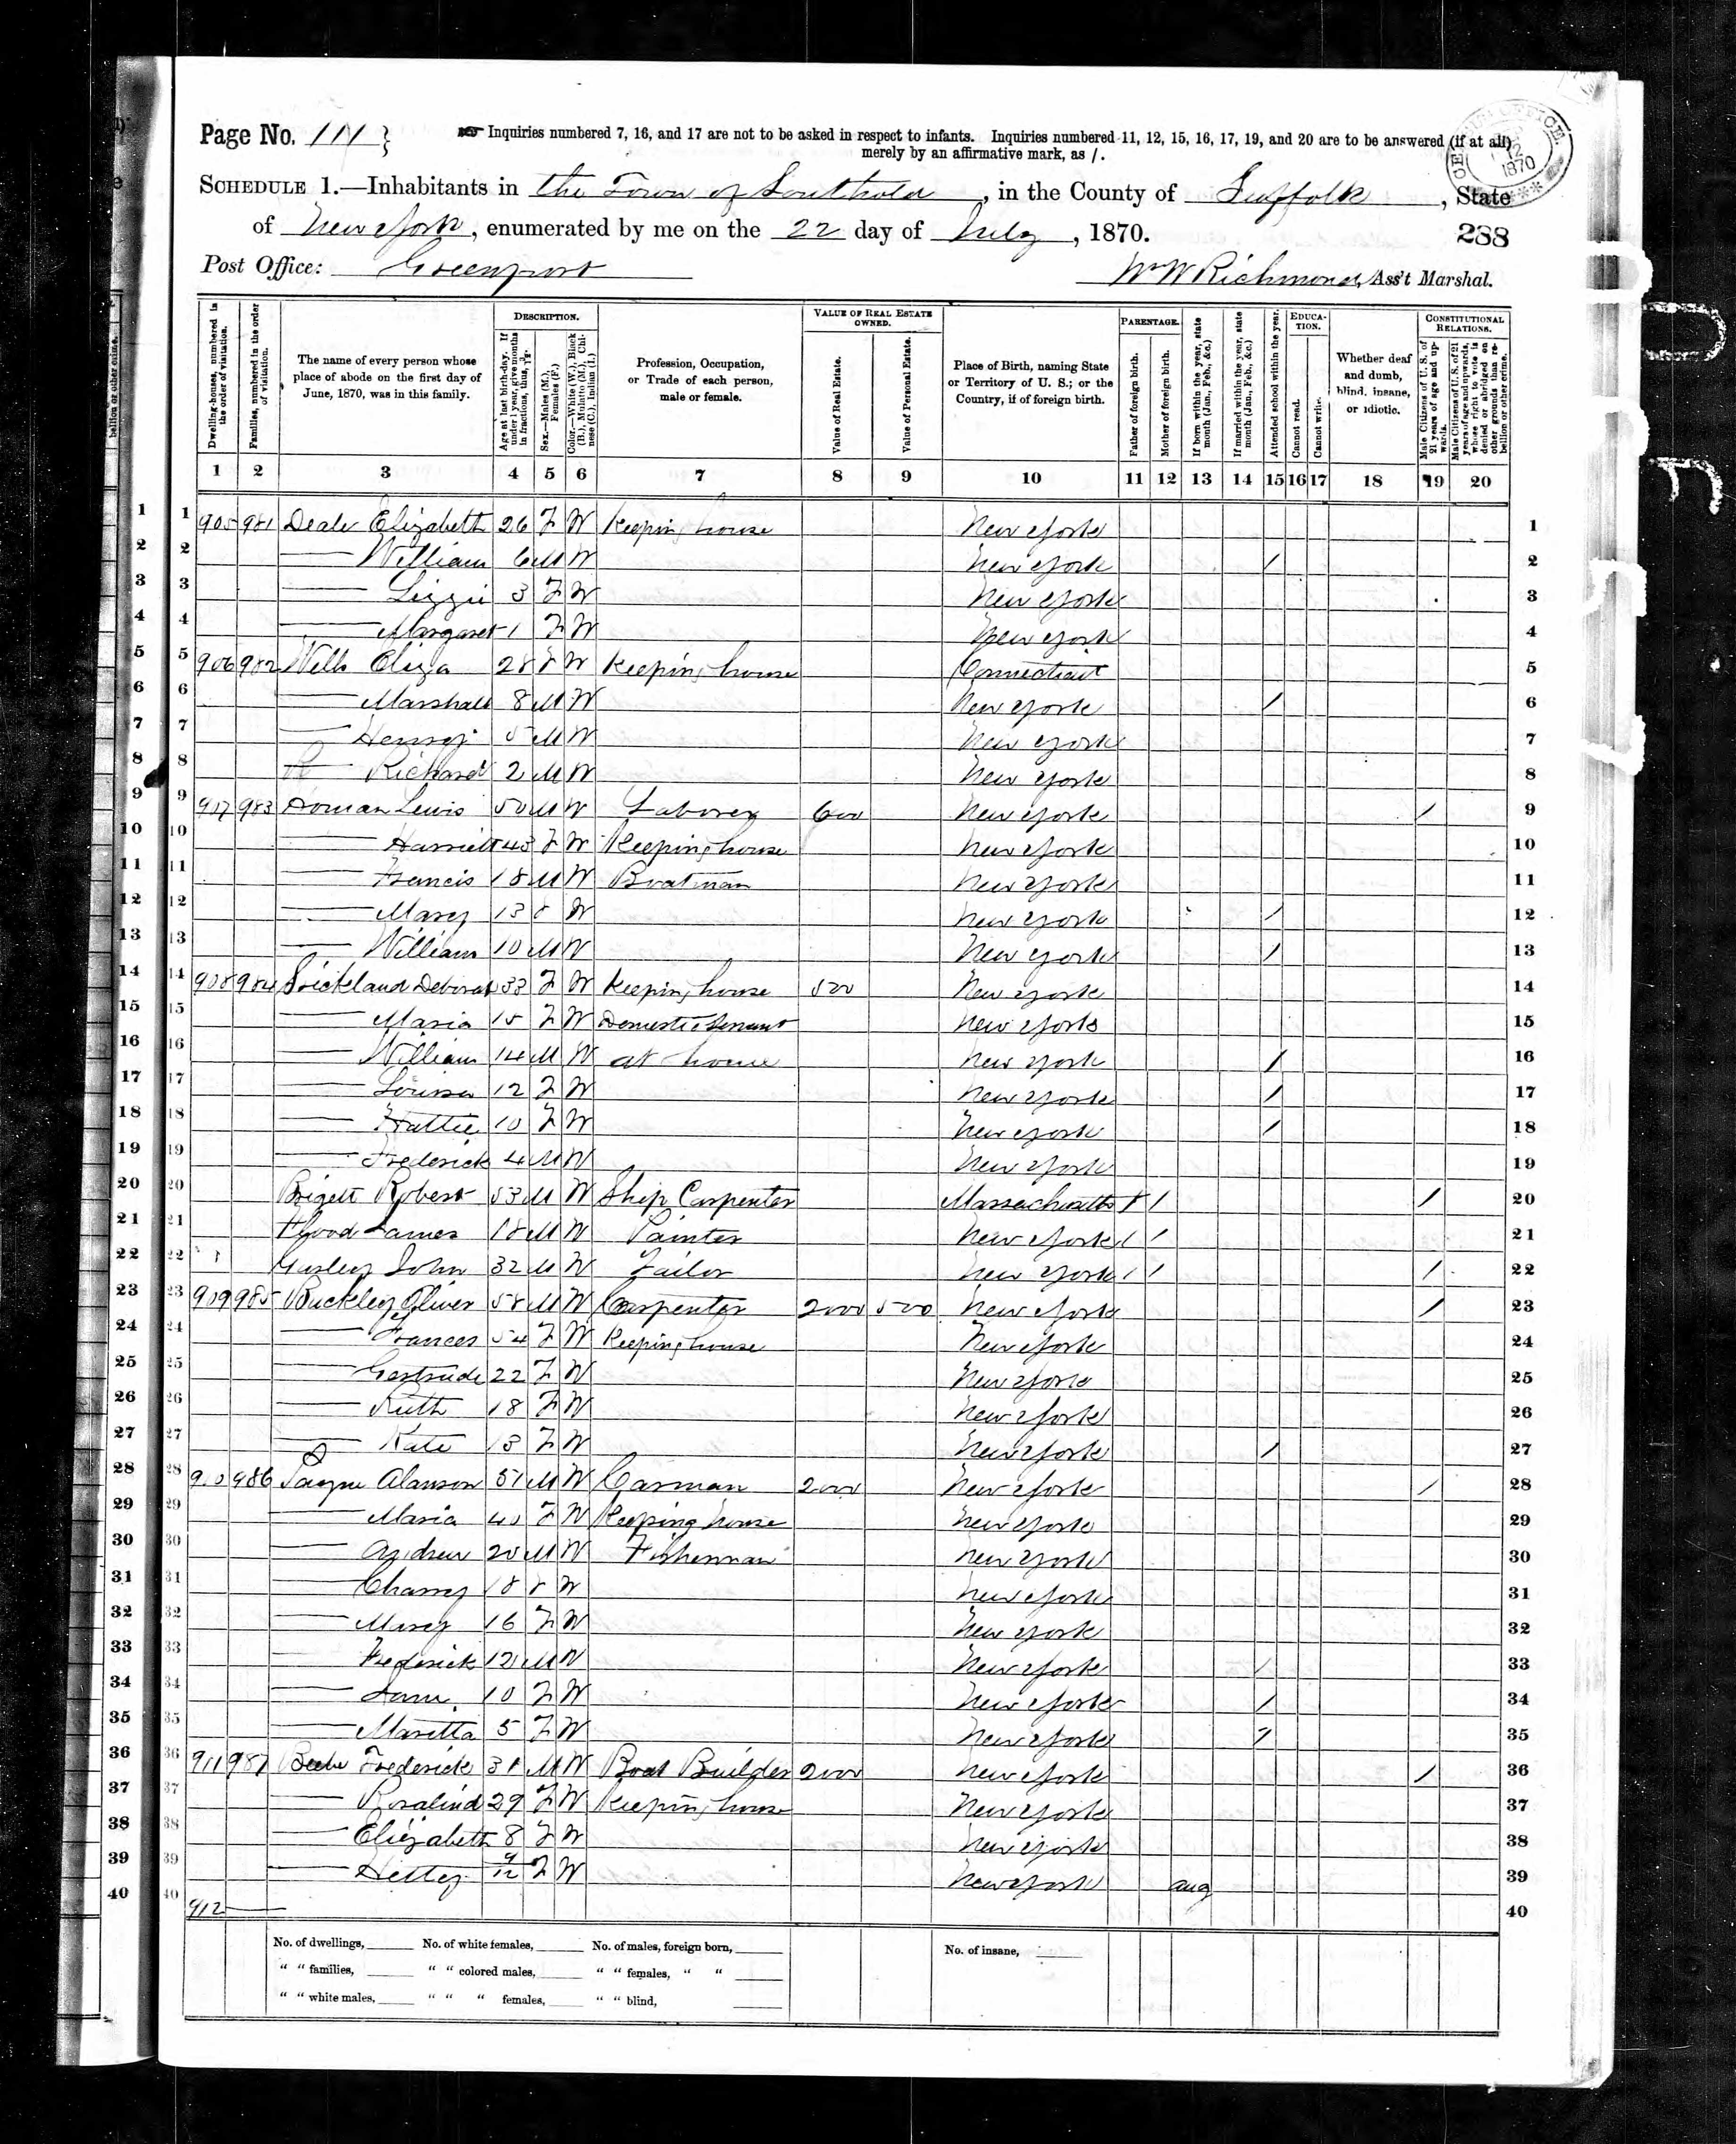 Page No. 111
Inquiries numbered 7, 16, and 17 are not to be asked in respect to infants. Inquiries numbered 11, 12, 15, 16, 17, 19, and 20 are to be answered (if at all)
merely by an affirmative mark, as /.
SCHEDULE 1.—Inhabitants in the Town of Southold, in the County of Suffolk, State
of New York, enumerated by me on the 22 day of July, 1870.
288
Post Office: Greenport
Wm W Richmond, Ass't Marshal.
1870
Dwelling-houses, numbered in the order of visitation.
Families, numbered in the order of visitation.
The name of every person whose place of abode on the first day of June, 1870, was in this family.
DESCRIPTION.
Age at last birth-day. If under 1 year, give months in fractions, thus, 3/12.
Sex.—Males (M.), Females (F.)
Color.—White (W.), Black (B.), Mulatto (M.), Chinese (C.), Indian (I.)
Profession, Occupation, or Trade of each person, male or female.
VALUE OF REAL ESTATE OWNED.
Value of Real Estate.
Value of Personal Estate.
Place of Birth, naming State or Territory of U. S.; or the Country, if of foreign birth.
PARENTAGE.
Father of foreign birth.
Mother of foreign birth.
If born within the year, state month (Jan., Feb., &c.)
If married within the year, state month (Jan., Feb., &c.)
Attended school within the year.
EDUCATION.
Cannot read.
Cannot write.
Whether deaf and dumb, blind, insane, or idiotic.
CONSTITUTIONAL RELATIONS.
Male Citizens of U. S. of 21 years of age and upwards.
Male Citizens of U. S. of 21 years of age and upwards, whose right to vote is denied or abridged on other grounds than rebellion or other crime.
1 2 3 4 5 6 7 8 9 10 11 12 13 14 15 16 17 18 19 20
1 905 981 Elizabeth 26 F W Keeping house New York 1
2 — William 6 M W New York / 2
3 — Lizzie 3 F W New York 3
4 — Margaret 1 F W New York 4
5 906 982 Wells Eliza 28 F W Keeping house Connecticut 5
6 — Marshall 8 M W New York / 6
7 — Henry 5 M W New York 7
8 — Richard 2 M W New York 8
9 907 983 Doman Lewis 50 M W Laborer 600 New York / 9
10 — Harriett 43 F W Keeping house New York 10
11 — Francis 18 M W Boatman New York 11
12 — Mary 13 F W New York / 12
13 — William 10 M W New York / 13
14 908 984 Strickland Deborah 33 F W Keeping house 500 New York 14
15 — Maria 15 F W Domestic Servant New York 15
16 — William 14 M W at home New York / 16
17 — Louisa 12 F W New York / 17
18 — Hattie 10 F W New York / 18
19 — Frederick 4 M W New York 19
20 Robert 53 M W Ship Carpenter Massachusetts / / / 20
21 Flood James 18 M W Painter New York / / 21
22 John 32 M W Tailor New York / / / 22
23 909 985 Buckley Oliver 58 M W Carpenter 2000 500 New York / 23
24 — Frances 54 F W Keeping house New York 24
25 — Gertrude 22 F W New York 25
26 — Ruth 18 F W New York 26
27 — Kate 13 F W New York / 27
28 910 986 Payne Alanson 51 M W Carman 2000 New York / 28
29 — Maria 40 F W Keeping house New York 29
30 — Andrew 20 M W Fisherman New York 30
31 — 18 F W New York 31
32 — Mary 16 F W New York 32
33 — Frederick 12 M W New York / 33
34 — 10 F W New York / 34
35 — Maretta 5 F W New York / 35
36 911 987 Beebe Frederick 31 M W Boat Builder 2000 New York / 36
37 — Rosalind 29 F W Keeping house New York 37
38 — Elizabeth 8 F W New York 38
39 — Hettey 9/12 F W New York Aug 39
40 912 — 40
No. of dwellings, No. of white females, No. of males, foreign born, No. of insane,
" " families, " " colored males, " " females, " "
" " white males, " " " females, " " blind,